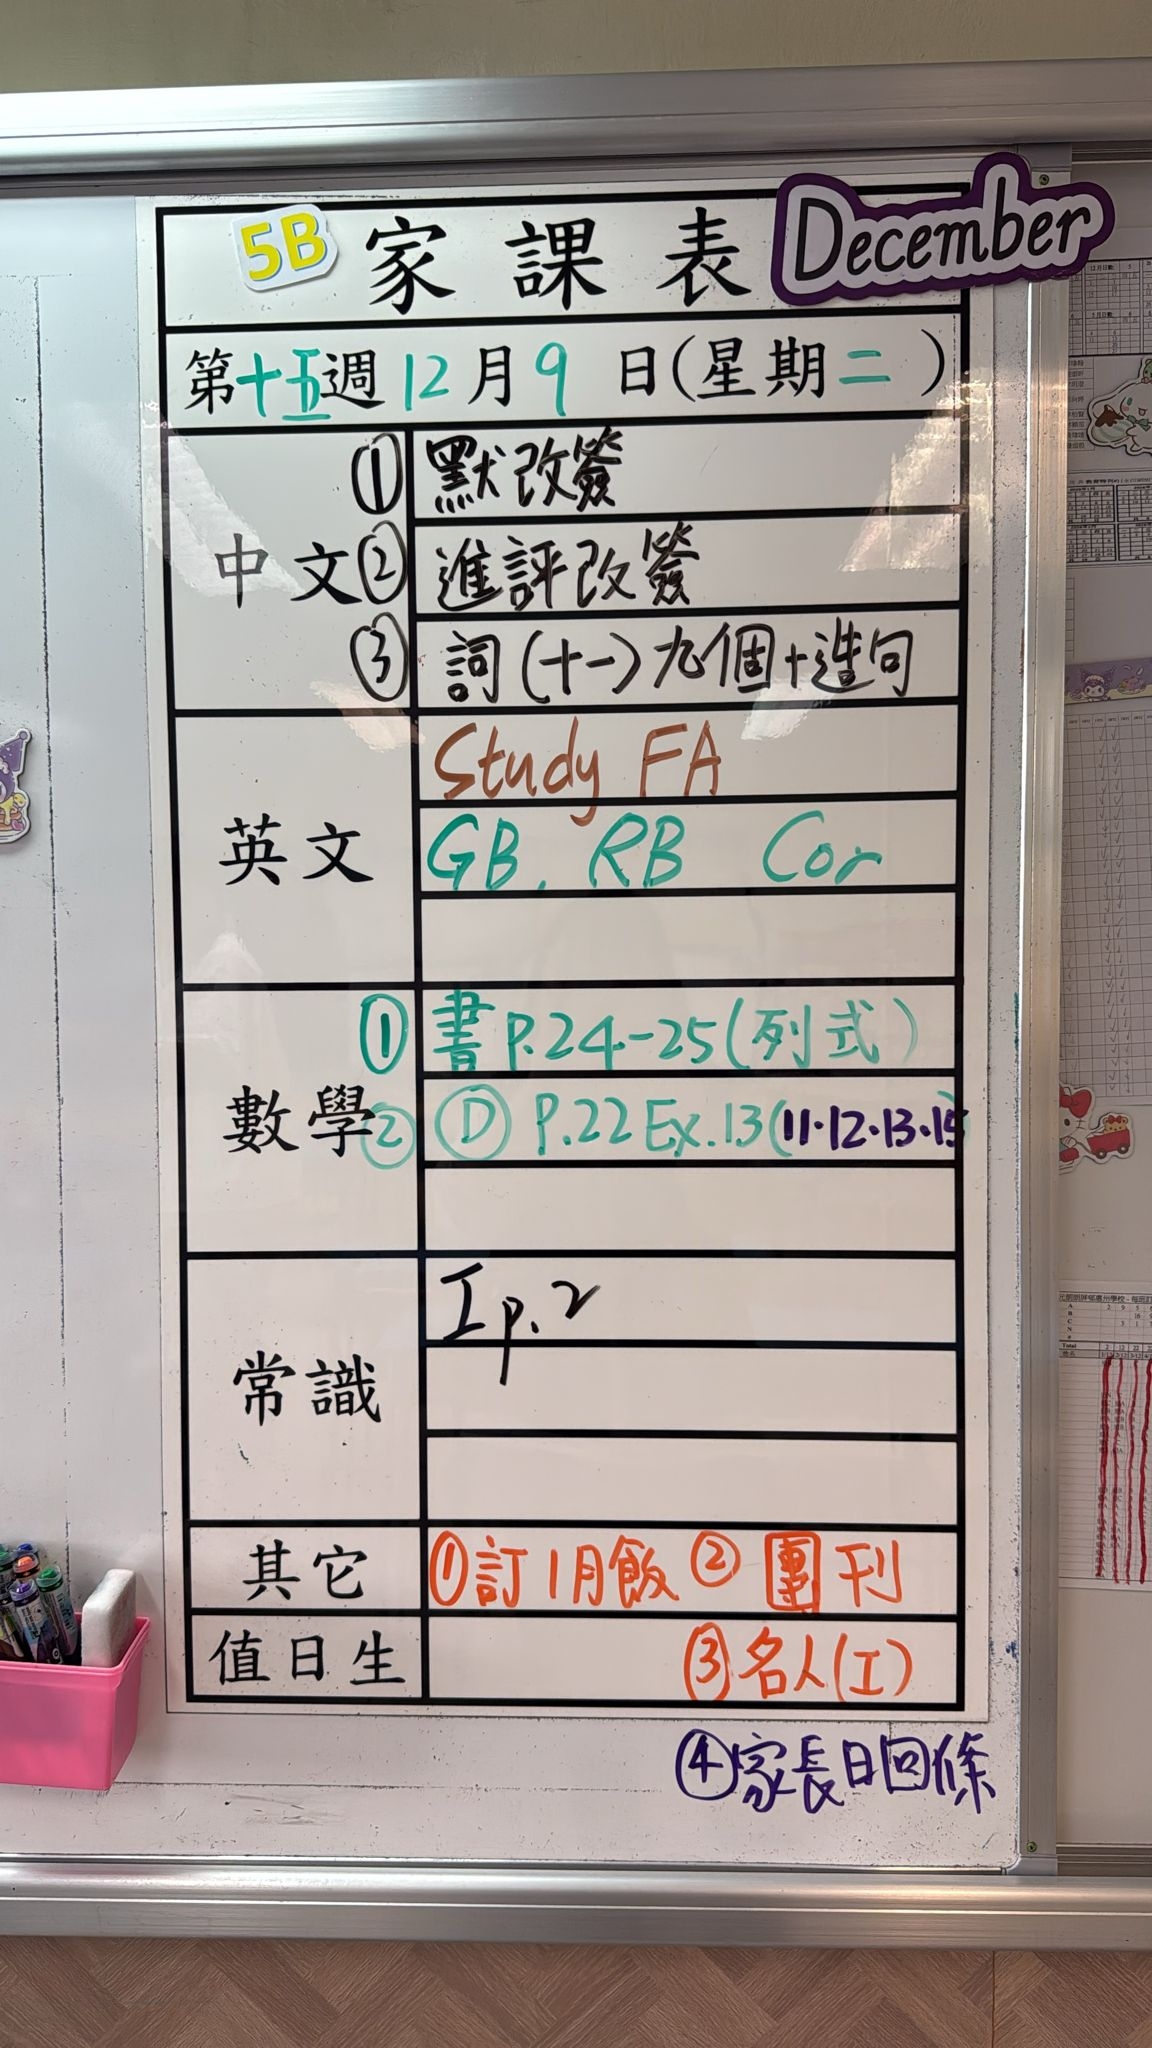 5B 家課表 December
第十五週 12月9日(星期二)
中文
① 默改簽
② 進評改簽
③ 詞(十一)九個+造句
英文
Study FA
GB, RB Cor
數學
① 書 P.24-25(列式)
② Ⓓ P.22 Ex.13(11.12.13.15
常識
工 p.2
其它
①訂1月飯 ② 團刊
值日生
③名人(工)
④家長日回條
Total